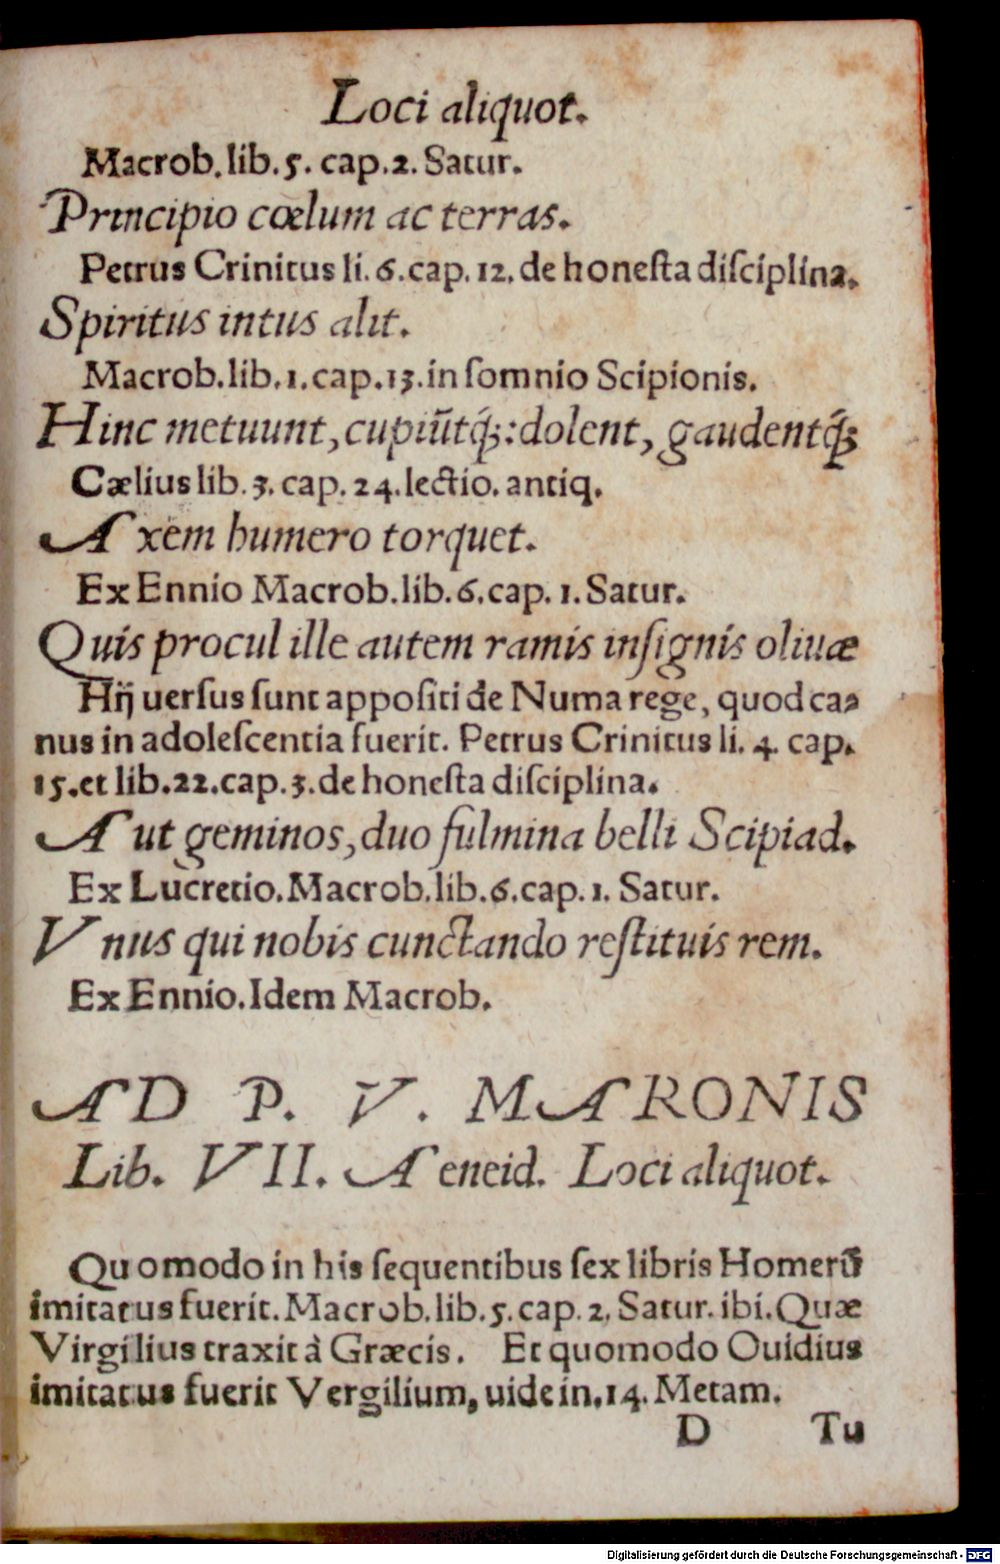 Loci aliquot.
Macrob. lib. 5. cap. 2. Satur.
Principio cœlum ac terras.
Petrus Crinitus li. 6. cap. 12. de honeſta diſciplina.
Spiritus intus alit.
Macrob. lib. 1. cap. 13. in ſomnio Scipionis.
Hinc metuunt, cupiūtq́;: dolent, gaudentq́;
Cælius lib. 3. cap. 24. lectio. antiq.
Axem humero torquet.
Ex Ennio Macrob. lib. 6. cap. 1. Satur.
Quis procul ille autem ramis inſignis oliuæ
Hij uerſus ſunt appoſiti de Numa rege, quod ca-
nus in adoleſcentia fuerit. Petrus Crinitus li. 4. cap.
15. et lib. 22. cap. 3. de honeſta diſciplina.
Aut geminos, duo fulmina belli Scipiad.
Ex Lucretio. Macrob. lib. 6. cap. 1. Satur.
Vnus qui nobis cunctando reſtituis rem.
Ex Ennio. Idem Macrob.
AD P. V. MARONIS
Lib. VII. Aeneid. Loci aliquot.
Quomodo in his ſequentibus ſex libris Homerū
imitatus fuerit. Macrob. lib. 5. cap. 2. Satur. ibi. Quæ
Virgilius traxit à Græcis. Et quomodo Ouidius
imitatus fuerit Vergilium, uide in. 14. Metam.
D Tu
Digitalisierung gefördert durch die Deutsche Forschungsgemeinschaft - DFG